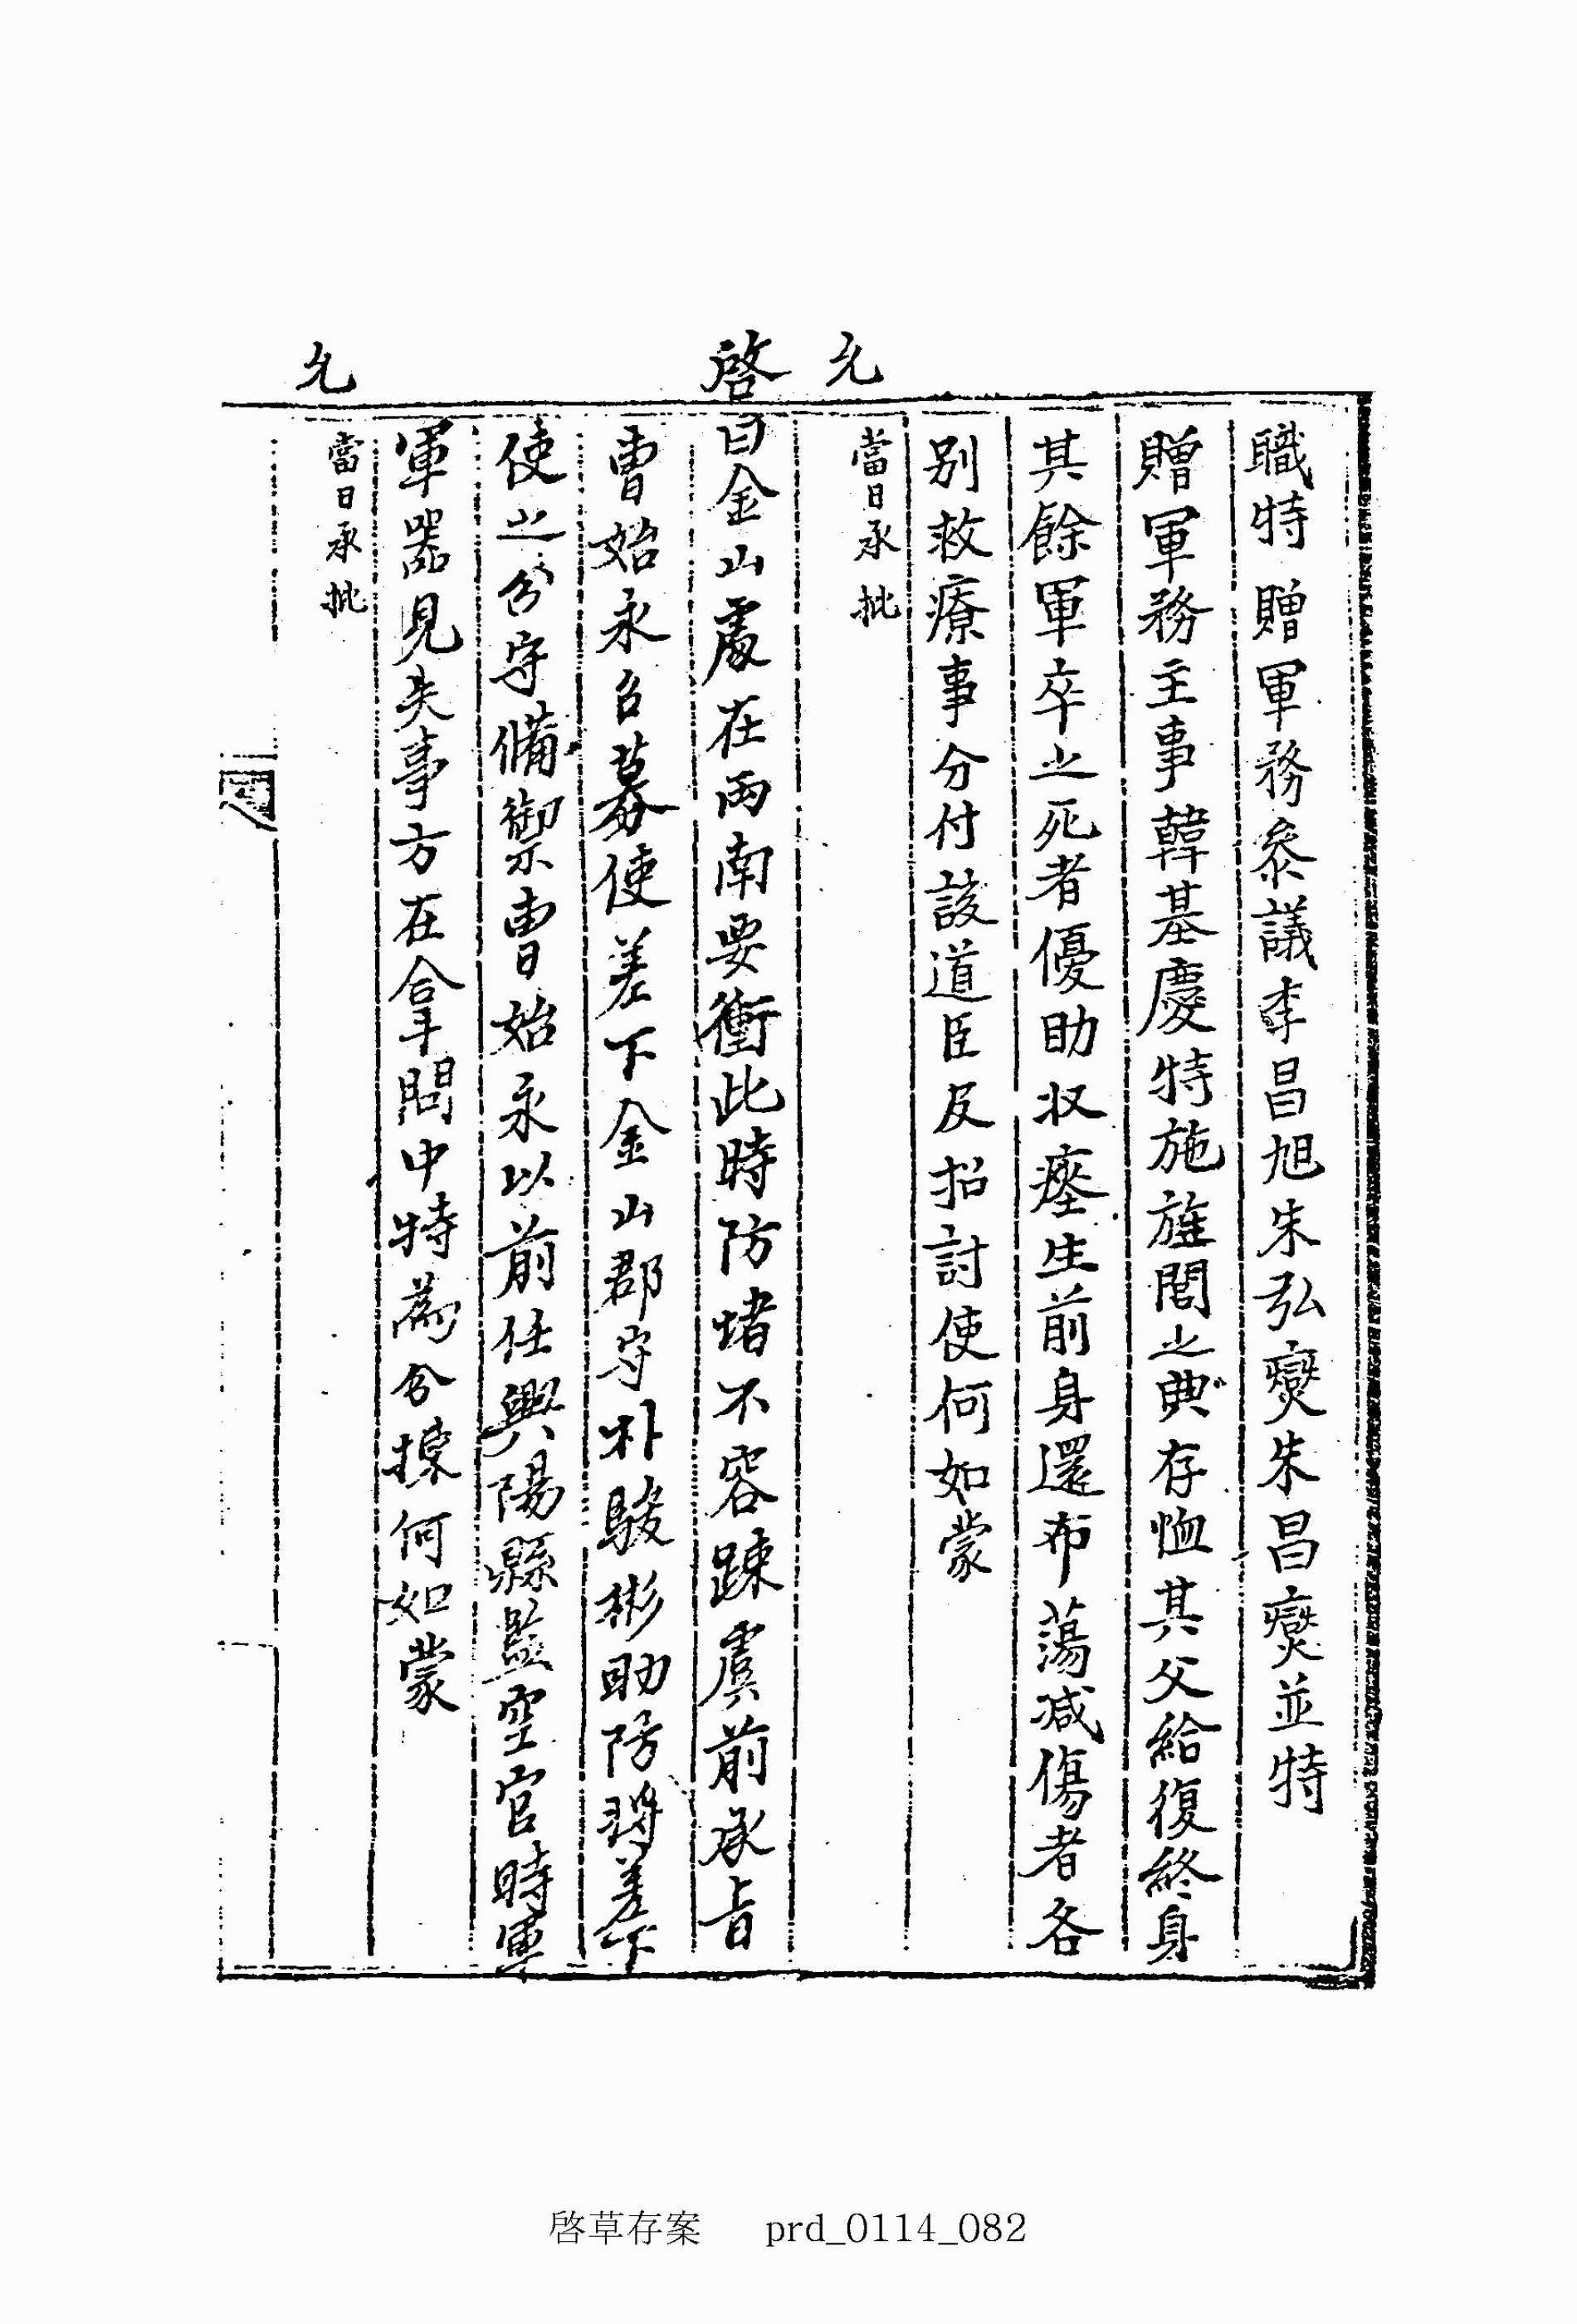 職特 贈軍務參議李昌旭朱弘燮朱昌燮並特
贈軍務主事韓基慶特施旌閭之典存恤其父給復終身
其餘軍卒之死者優助收瘞生前身還布蕩减傷者各
別救療事分付該道臣及招討使何如蒙
允
當日承批
啓曰金山處在兩南要衝此時防堵不容踈虞前承旨
曺始永召募使差下金山郡守朴駿彬助防將差下
使之分守備禦曺始永以前任興陽縣監空官時軍
軍器見失事方在拿問中特爲分揀何如蒙
允
當日承批
啓草存案 prd_0114_082